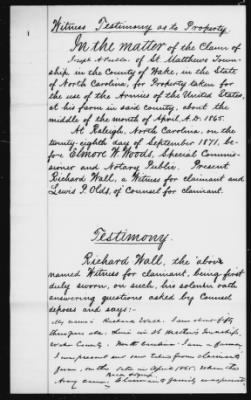 Witness Testimony as to Property
In the matter of the Claim of
of St. Matthews Town-
ship, in the County of Wake, in the State
of North Carolina, for Property taken for
the use of the Armies of the United States,
at his farm in said county, about the
middle of the month of April A.D. 1865.
At Raleigh, North Carolina, on the
twenty-eighth day of September 1871, be-
fore Elmore W. Woods, Special Commis-
sioner and Notary Public. Present
Richard Wall, a Witness for claimant and
Lewis P. Olds, of Counsel for claimant.
Testimony.
Richard Wall, the above
named Witness for claimant, being first
duly sworn, on such, his solemn oath
answering questions asked by Counsel
deposes and says:-
My name is Richard Wall. I am about fifty
years old. live in St Matthews Township
Wake County. North Carolina. I am a farmer
I was present and saw taken from claimants
farm, on the in April 1865. When the
Army came. Claimant & family